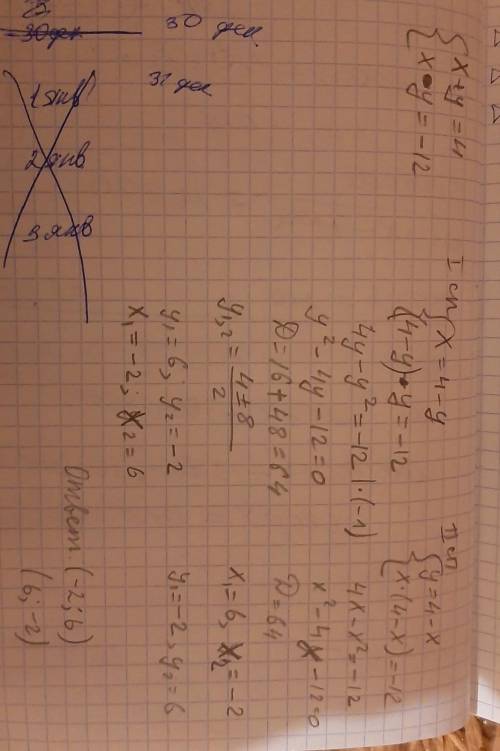 30 дек
30 дек.
1 янв
31 дек
2 янв
3 янв
{ x + y = 4
{ x • y = -12
I сп { x = 4 - y
{ (4 - y) • y = -12
4y - y² = -12 | · (-1)
y² - 4y - 12 = 0
D = 16 + 48 = 64
y₁,₂ = (4 ± 8)/2
y₁ = 6; y₂ = -2
x₁ = -2; x₂ = 6
II сп { y = 4 - x
{ x · (4 - x) = -12
4x - x² = -12
x² - 4x - 12 = 0
D = 64
x₁ = 6, x₂ = -2
y₁ = -2, y₂ = 6
Ответ (-2; 6)
(6; -2)